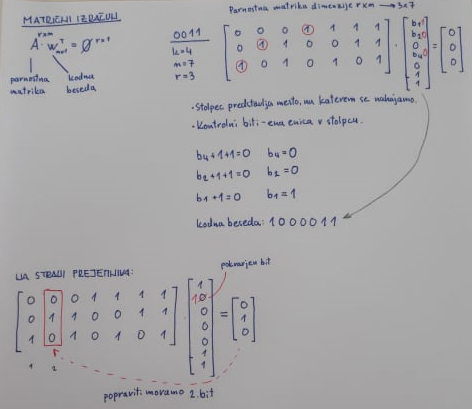 MATRIČNI IZRAČUN
A^{r×m} · w^T_{m×1} = 0^{r×1}
parnostna matrika
kodna beseda
0011
k=4
m=7
r=3
Parnostna matrika dimenzije r×m → 3×7
0 0 0 1 1 1 1
0 1 1 0 0 1 1
1 0 1 0 1 0 1
b1 1
b2 0
0
b4 0
0
1
1
=
0
0
0
• Stolpec predstavlja mesto, na katerem se nahajamo.
• Kontrolni biti - ena enica v stolpcu.
b4+1+1=0 b4=0
b2+1+1=0 b2=0
b1+1=0 b1=1
kodna beseda: 1000011
NA STRANI PREJEMNIKA:
pokvarjen bit
0 0 0 1 1 1 1
0 1 1 0 0 1 1
1 0 1 0 1 0 1
1
0
0
0
1
1
=
0
1
0
1 2
popraviti moramo 2.bit